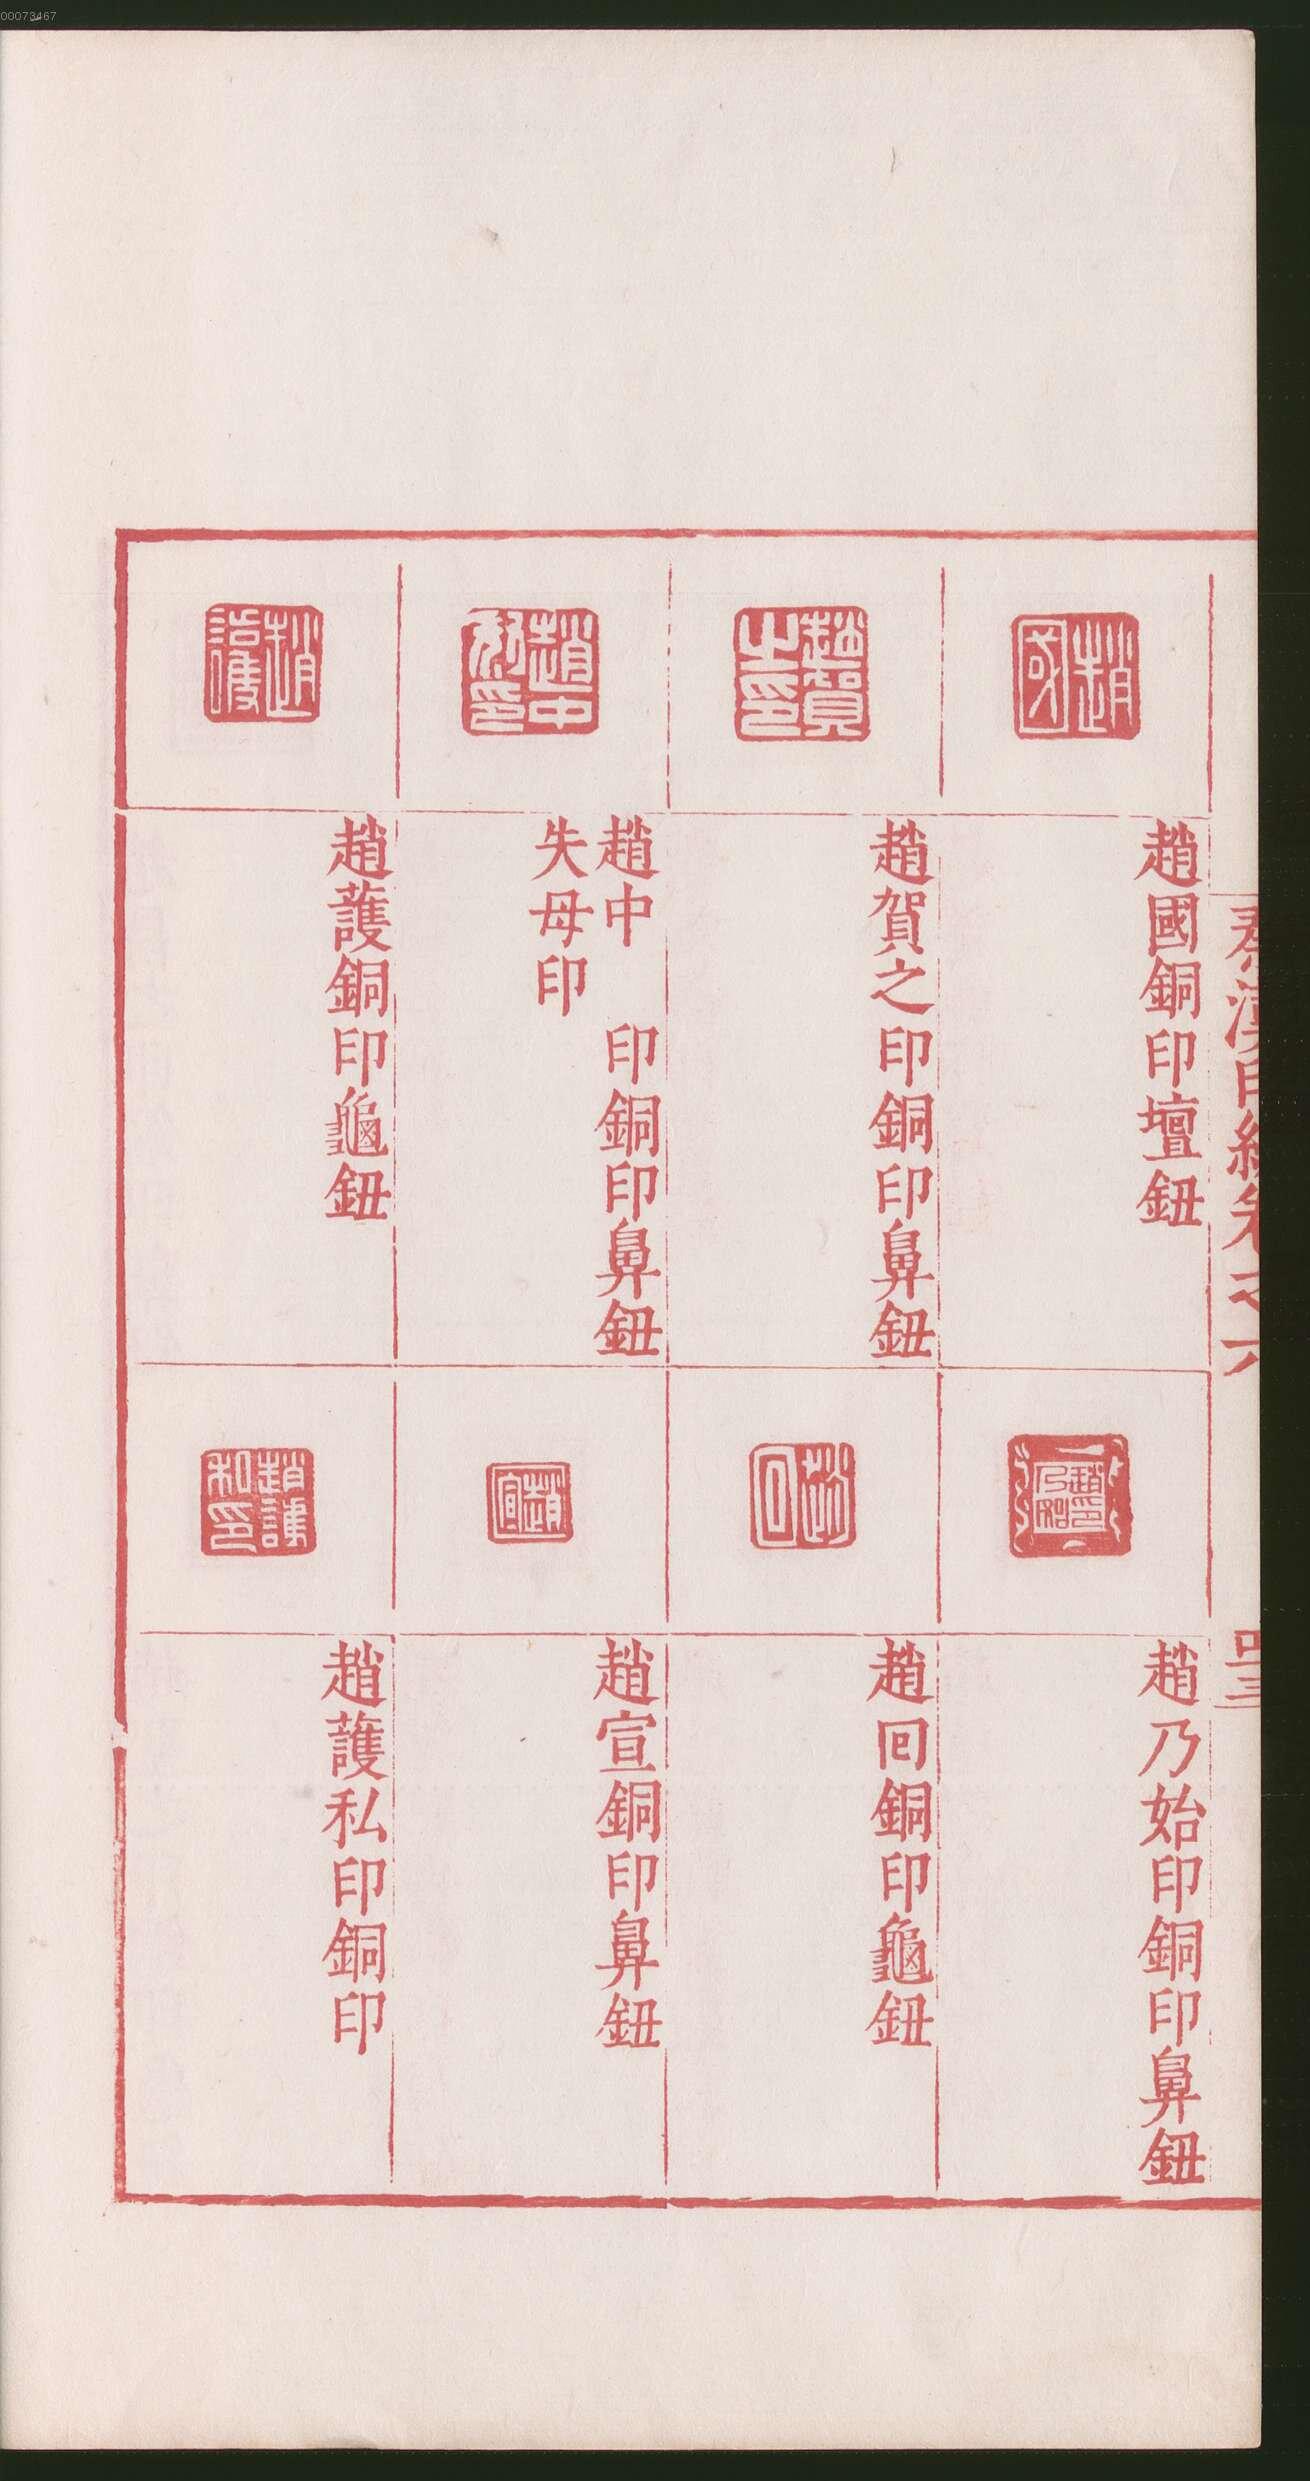 00073467
秦漢印統卷之六
四三
趙國
趙國銅印壇鈕
趙賀之印
趙賀之印銅印鼻鈕
趙中
趙中 印銅印鼻鈕
失母印
趙
趙護銅印龜鈕
趙乃始印
趙乃始印銅印鼻鈕
趙回
趙回銅印龜鈕
趙宣
趙宣銅印鼻鈕
趙護私印
趙護私印銅印